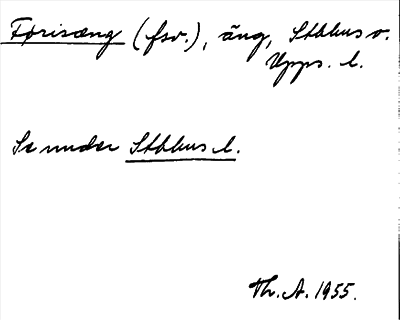 Førisæng (fsv.), äng, Sthlms o.
Upps. l.
Se under Sthlms l.
Th. A. 1955.